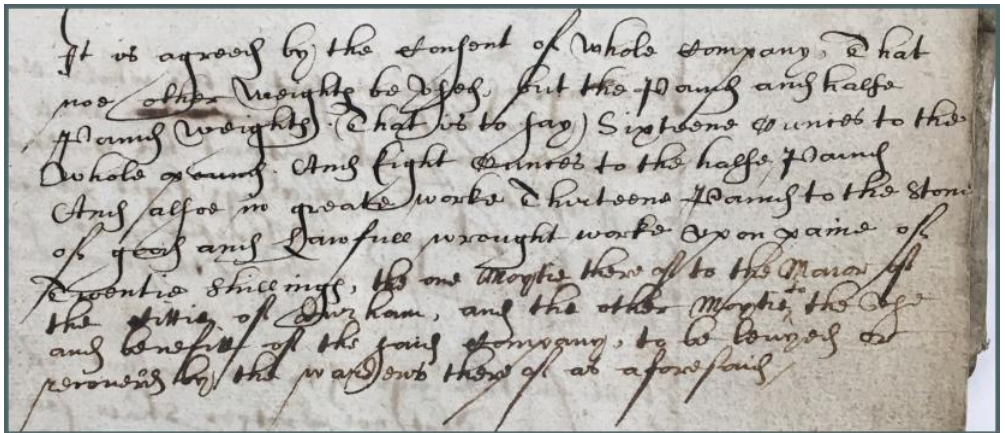 It is agreed by the Consent of whole Company, That
noe other Weights be Used, but the Pound and halfe
Pound Weights (That is to say) Sixteene Ounces to the
whole pound And Eight Ounces to the halfe Pound
And alsoe in greate worke Thirteene Pound to the Stone
of good and Lawfull wrought worke Upon paine of
Twentie Shillings, the one Moytie there of to the Maior of
the Cittie of Durham, and the other Moytie to the Use
and benefitt of the said Company, to be levyed or
recovered by the wardens there of as aforesaid